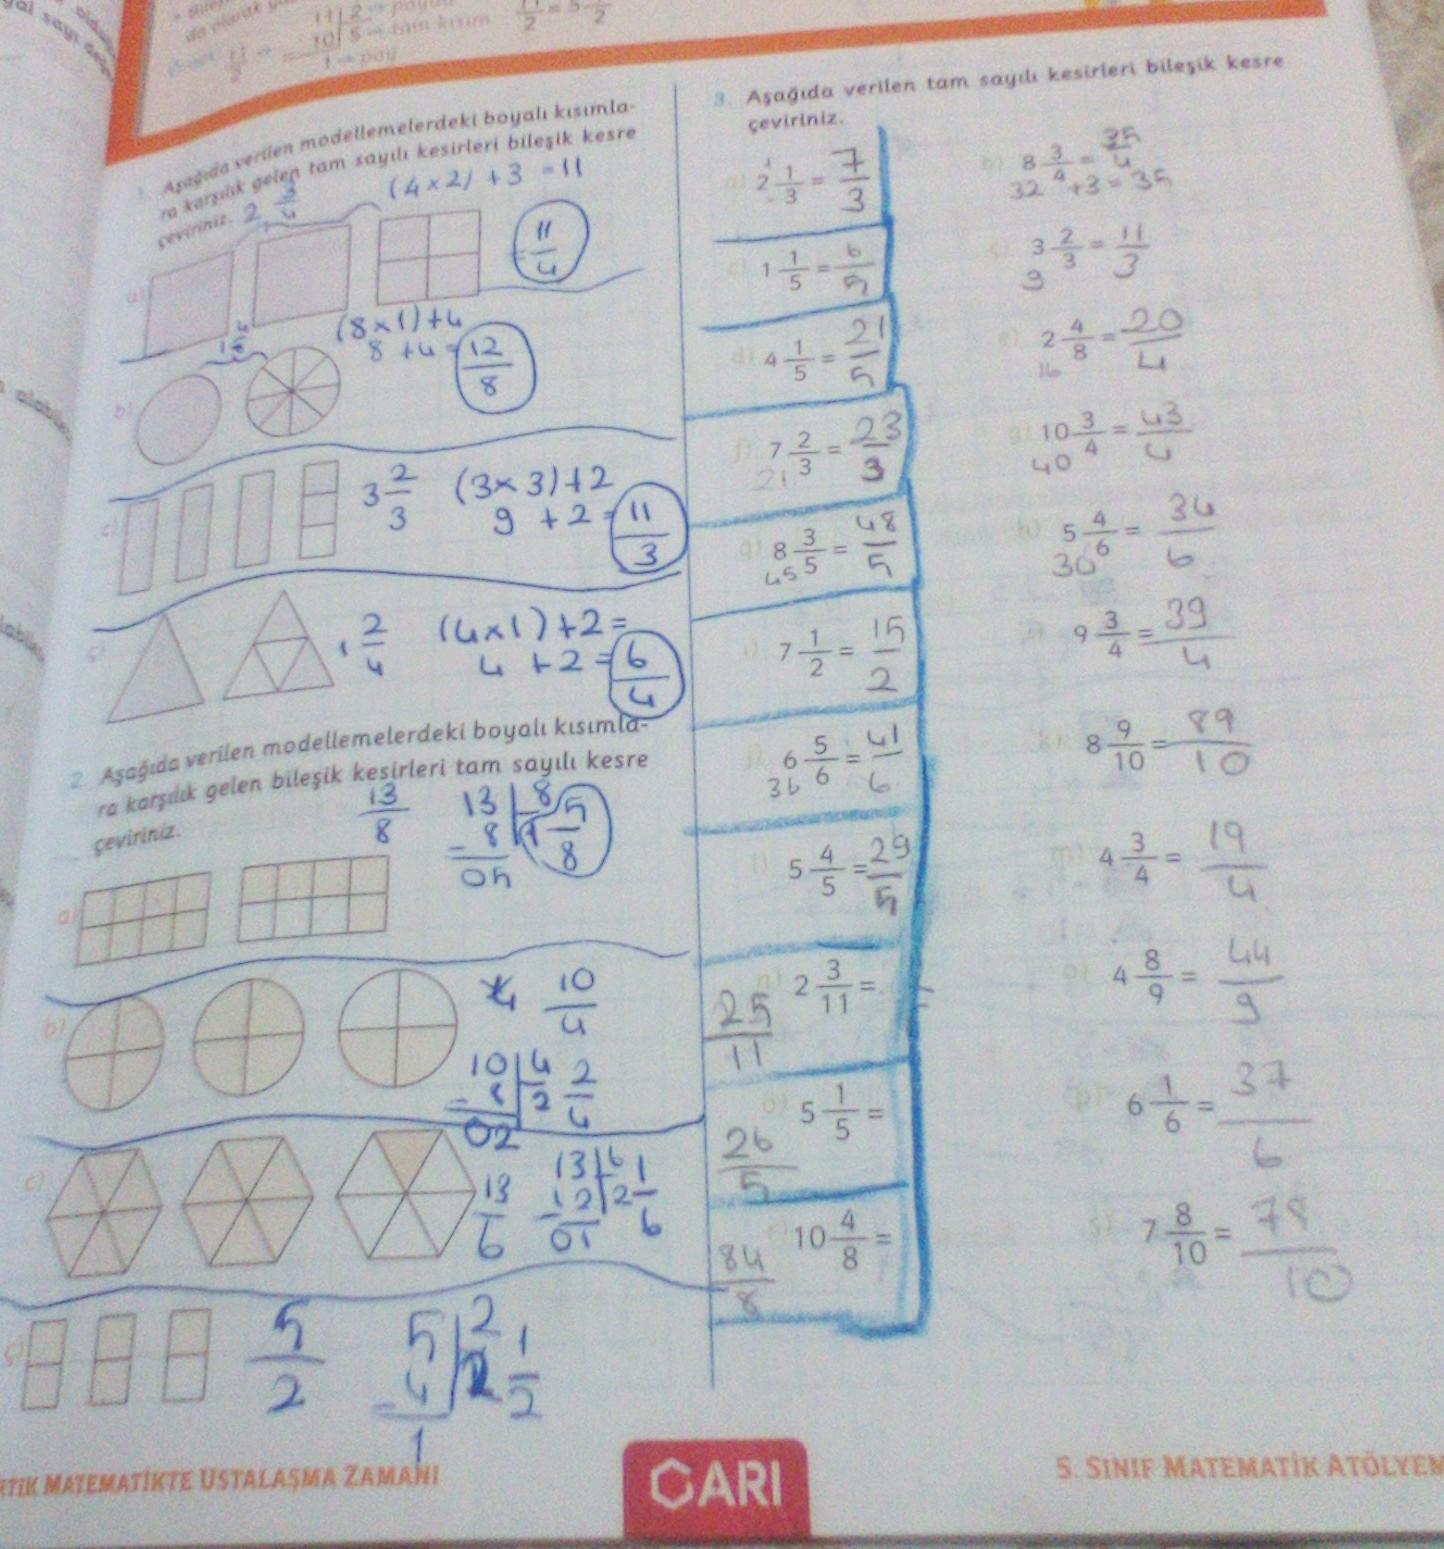 11 2
10 5
1 → pay
1. Aşağıda verilen modellemelerdeki boyalı kısımla-
ra karşılık gelen tam sayılı kesirleri bileşik kesre
çeviriniz. 2 3/4
(4×2) + 3 = 11
a)
11/4
1 4/8
(8×1)+4
8 + 4 = 12/8
b)
c)
3 2/3 (3×3)+2
9 + 2 = 11/3
ç)
1 2/4 (4×1)+2=
4 + 2 = 6/4
2. Aşağıda verilen modellemelerdeki boyalı kısımla-
ra karşılık gelen bileşik kesirleri tam sayılı kesre
çeviriniz.
13/8
13 8
- 8 1 5/8
05
a)
b)
10/4
10 4
- 8 2 2/4
02
c)
13/6
13 6
- 12 2 1/6
01
ç)
5/2
5 2
- 4 2 1/2
1
3. Aşağıda verilen tam sayılı kesirleri bileşik kesre
çeviriniz.
2 1/3 = 7/3
b) 8 3/4 = 35/4
32 +3 = 35
c) 1 1/5 = 6/5
ç) 3 2/3 = 11/3
9
d) 4 1/5 = 21/5
e) 2 4/8 = 20/4
16
f) 7 2/3 = 23/3
21
g) 10 3/4 = 43/4
40
ğ) 8 3/5 = 48/5
45
h) 5 4/6 = 34/6
30
ı) 7 1/2 = 15/2
i) 9 3/4 = 39/4
j) 6 5/6 = 41/6
36
k) 8 9/10 = 89/10
l) 5 4/5 = 29/5
m) 4 3/4 = 19/4
n) 2 3/11 =
25/11
o) 4 8/9 = 44/9
ö) 5 1/5 =
26/5
p) 6 1/6 = 37/6
r) 10 4/8 =
84/8
s) 7 8/10 = 78/10
MATEMATİKTE USTALAŞMA ZAMANI
ARI
5. SINIF MATEMATİK